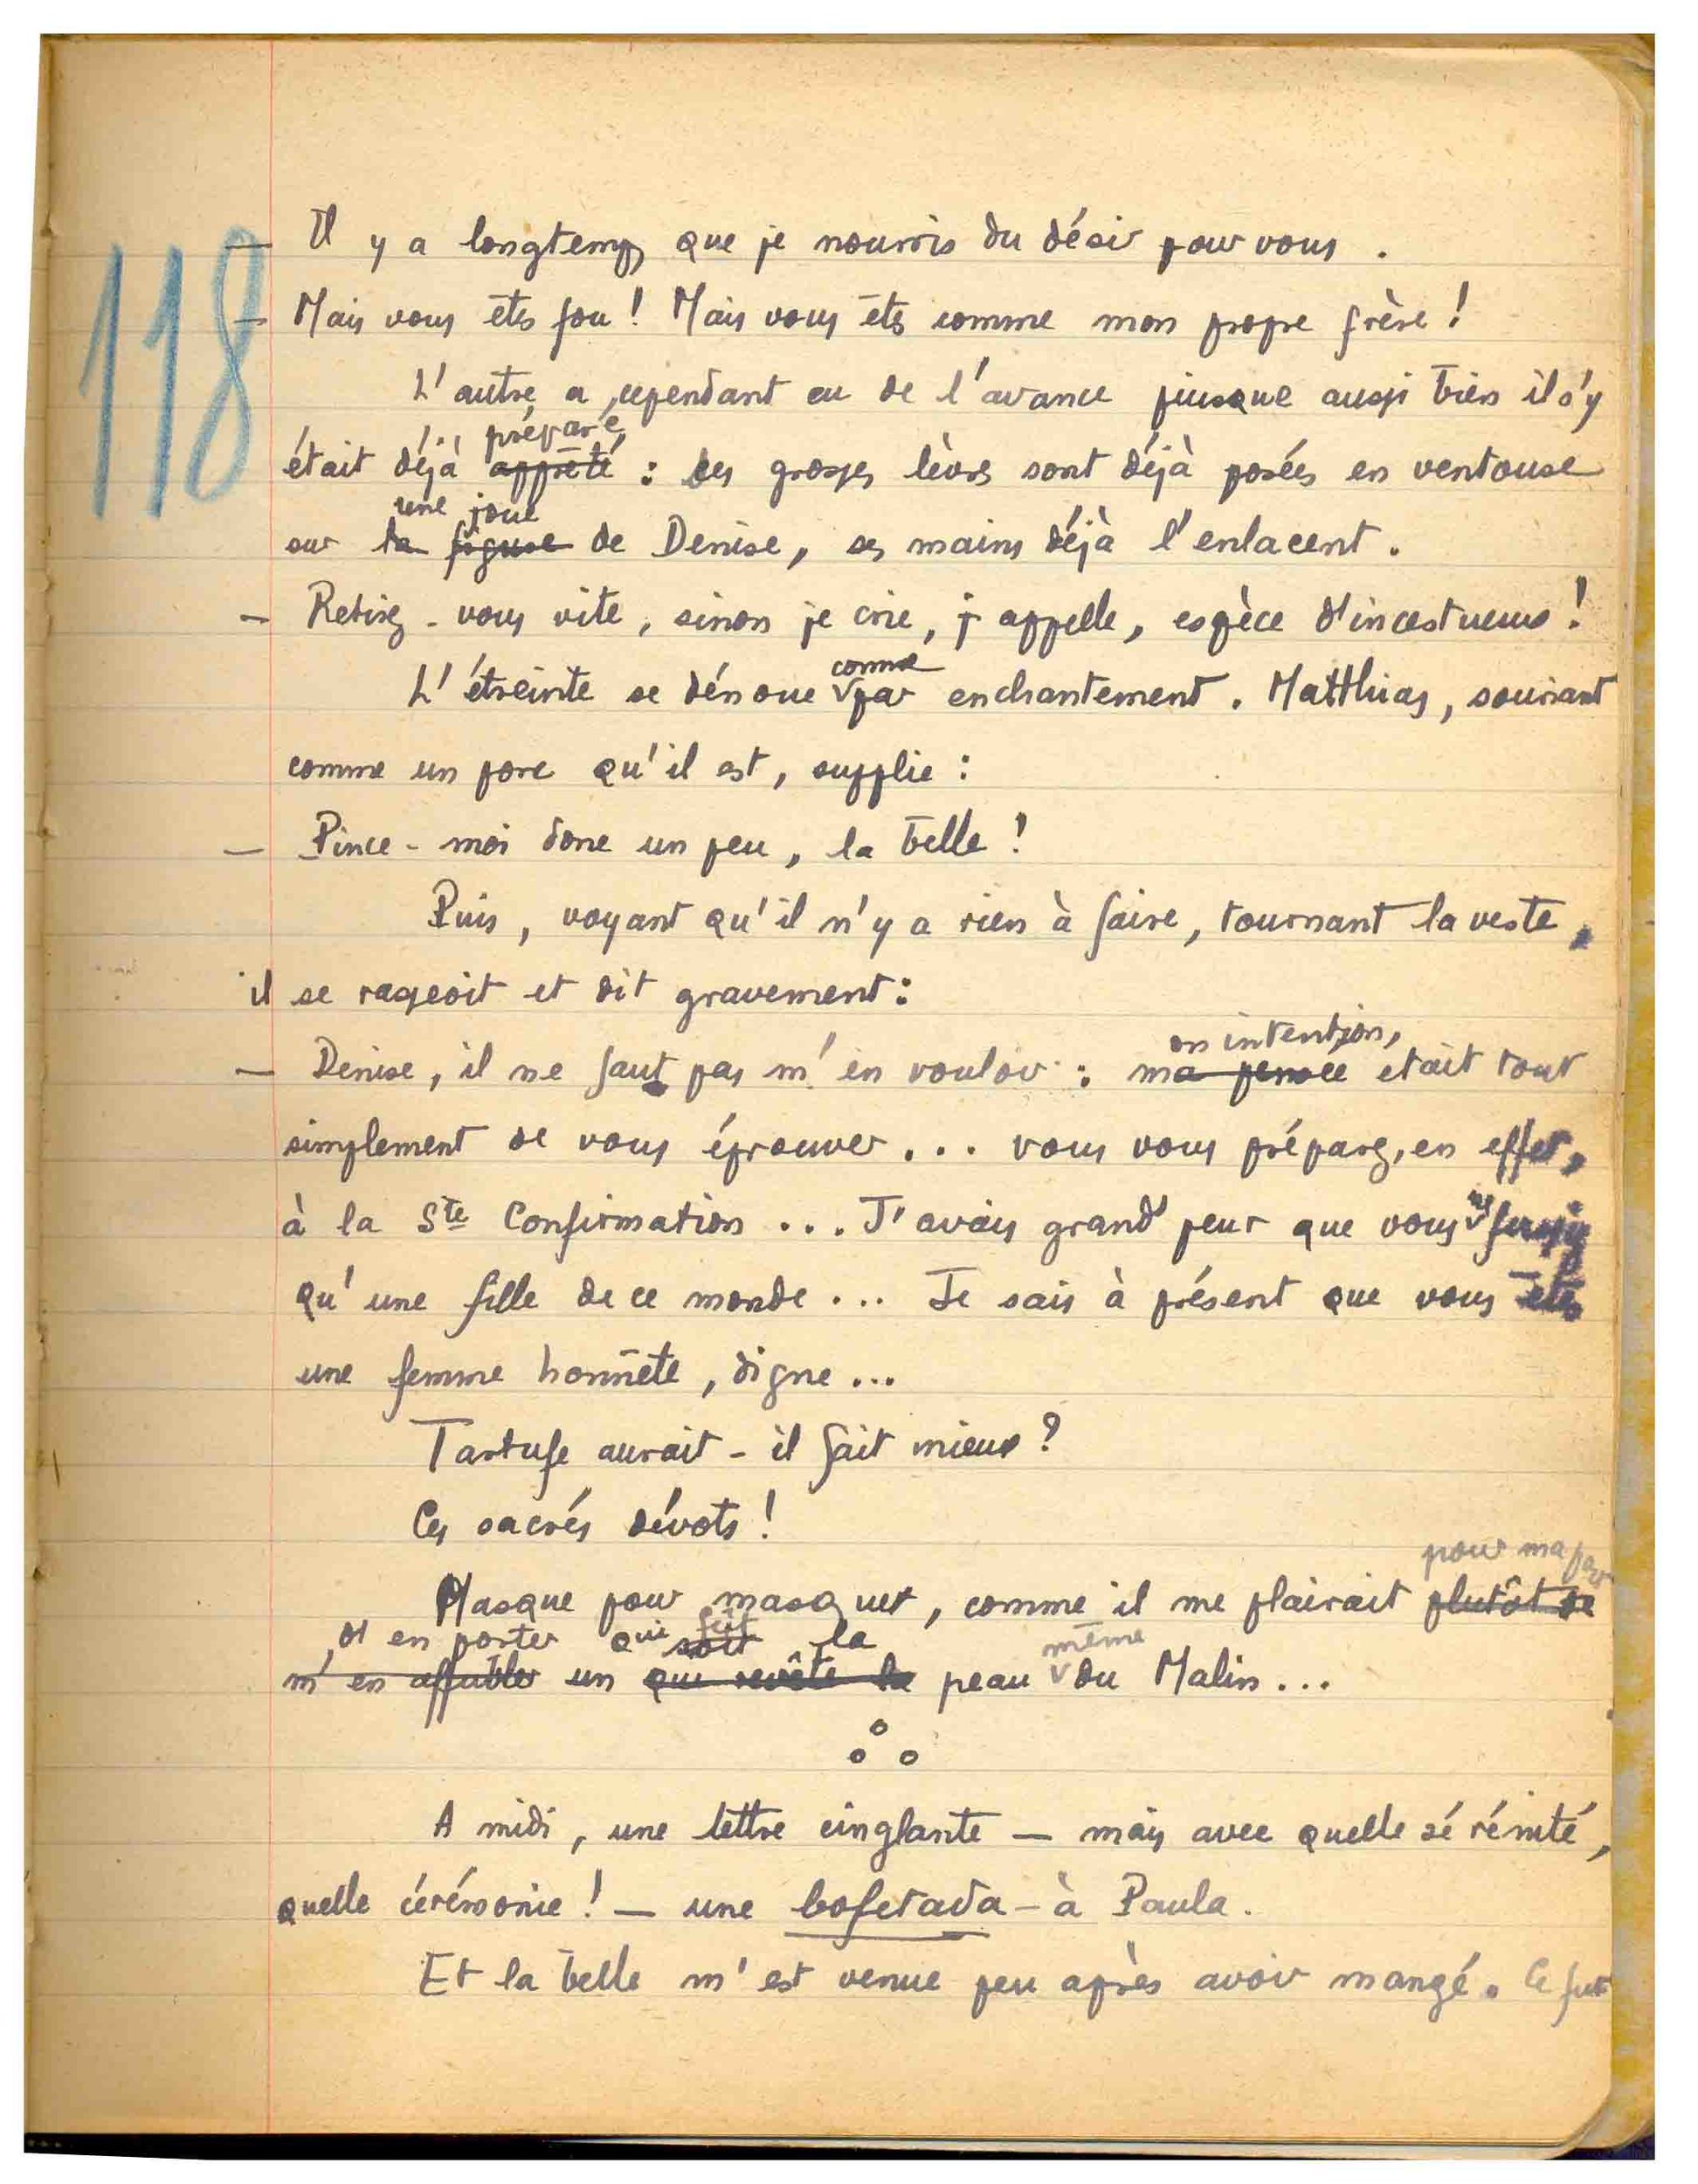 118
— Il y a longtemps que je nourris du désir pour vous.
— Mais vous êtes fou! Mais vous êtes comme mon propre frère!
L'autre a cependant eu de l'avance puisque aussi bien il s'y
préparé
était déjà apprêté : ses grosses lèvres sont déjà posées en ventouse
une joue
sur la figure de Denise, ses mains déjà l'enlacent.
— Retirez-vous vite, sinon je crie, j'appelle, espèce d'incestueux!
comme
L'étreinte se dénoue par enchantement. Matthias, souriant
comme un porc qu'il est, supplie :
— Pince-moi donc un peu, la belle!
Puis, voyant qu'il n'y a rien à faire, tournant la veste,
il se rasseoit et dit gravement :
on intention,
— Denise, il ne faut pas m'en vouloir : ma pensée était tout
simplement de vous éprouver... vous vous préparez, en effet,
ne
à la Ste Confirmation... J'avais grand'peur que vous fussiez
qu'une fille de ce monde... Je sais à présent que vous êtes
une femme honnête, digne...
Tartufe aurait-il fait mieux?
Ces sacrés dévots!
pour ma part
Masque pour masque, comme il me plairait plutôt de
d'en porter qui soit fût la même
m'en affubler un qui revête la peau du Malin...
A midi, une lettre cinglante — mais avec quelle sérénité,
quelle cérémonie! — une bofetada — à Paula.
Et la belle m'est venue peu après avoir mangé. Ce fut